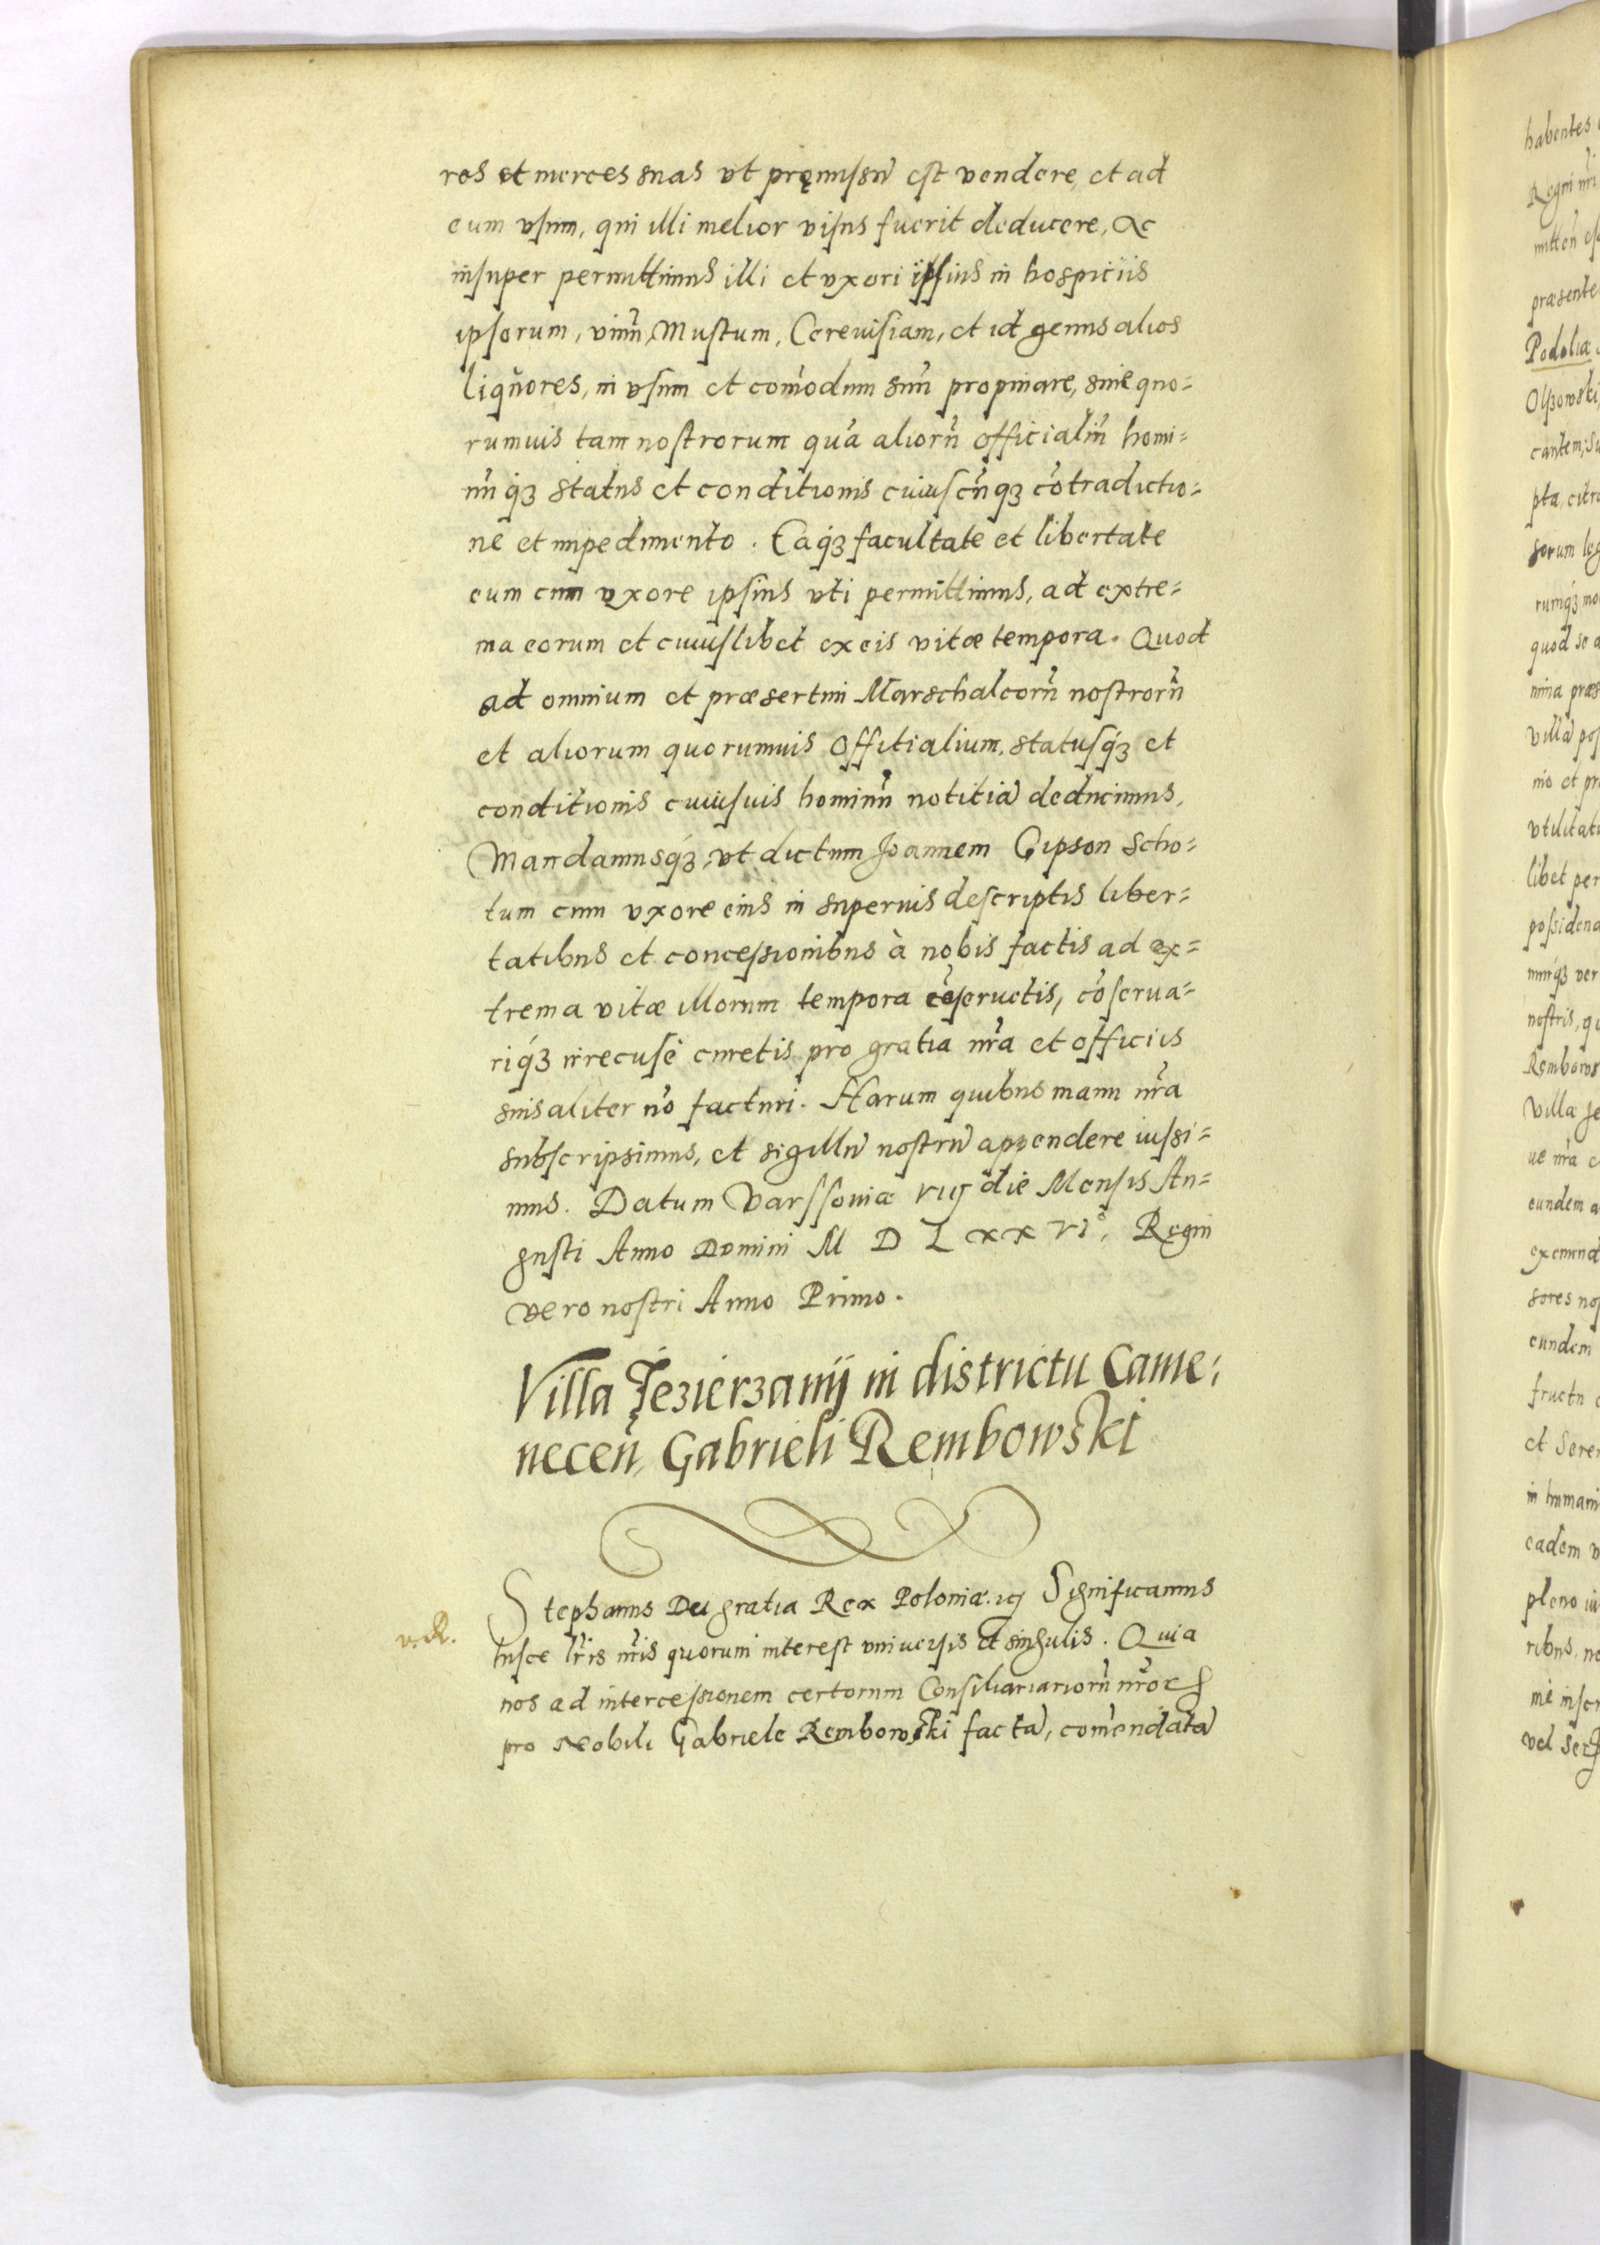 res et merces suas vt pręmissũ est vendere, et ad
eum vsum, qui illi melior visus fuerit deducere, Ac
insuper permittimus illi et vxori ipsius in hospiciis
ipsorum, vinũ, Mustum, Cereuisiam, et id genus alios
liquores, in vsum et com̃odum suũ propinare, sine quo=
rumuis tam nostrorum quã aliorũ officialiũ homi=
nũ qꝫ status et conditionis cuiuscũqꝫ cõtradictio=
ne et impedimento. Eaqꝫ facultate et libertate
eum cum vxore ipsius vti permittimus, ad extre=
ma eorum et cuiuslibet ex eis vitæ tempora. Quod
ad omnium et præsertim Marschalcorũ nostrorũ
et aliorum quorumuis Offitialium, statusqꝫ et
conditionis cuiusuis hominũ notitiã deducimus,
Mandamusqꝫ, vt dictum Joannem Gipson Scho=
tum cum vxore eius in superius descriptis liber=
tatibus et concessionibus à nobis factis ad ex=
trema vitæ illorum tempora cõseruetis, cõserua=
riqꝫ irrecusẽ curetis pro gratia nr̃a et officiis
suis aliter nõ facturi. Harum quibus manu nr̃a
subscripsimus, et sigillũ nostrũ appendere iussi=
mus. Datum Varssoviæ viij die Mensis Au=
gusti Anno Domini M D L xx vi°, Regni
vero nostri Anno Primo.
Villa Jezierzanij in districtu Came=
necen̄, Gabrieli Rembowski
v.R.
Stephanus Dei gratia Rex Poloniæ. ꝛc Significamus
hisce lr̃is nr̃is quorum interest vniuersis et singulis. Quia
nos ad intercessionem certorum Consiliariariorũ nr̃oꝝ
pro Nobili Gabriele Rembowski factã, com̃endatã
habentes
Regni nr̃i
mitten̄
præsente
Podoliæ
Olszowski,
cantem, su
pta, citra
sorum leg
rumqꝫ mo
quod se a
nina præs
villã pos
nio et pr
vtilitati
libet per
possidend
mnqꝫ ver
nostris, qu
Rembows
Villa Je
ue nr̃a c
eundem a
eximend
sores nos
eundem
fructu
et Seren
in humani
eadem v
pleno iu
ribus, no
me inser
vel Ser